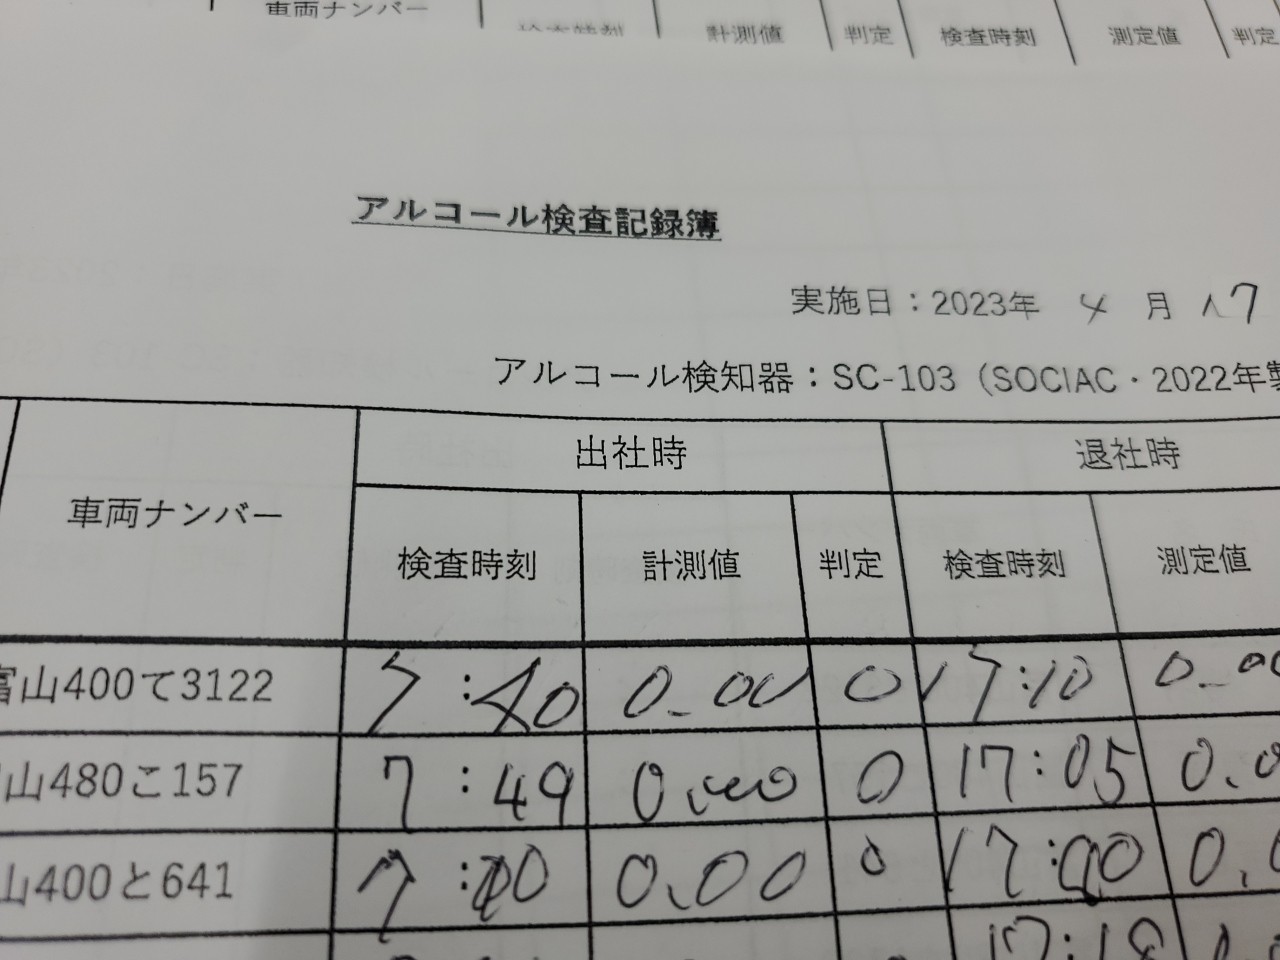 車両ナンバー 検査時刻 計測値 判定 検査時刻 測定値 判定
アルコール検査記録簿
実施日：2023年 4 月 17
アルコール検知器：SC-103（SOCIAC・2022年製
出社時 退社時
車両ナンバー 検査時刻 計測値 判定 検査時刻 測定値
富山400て3122 7:40 0.00 0 17:10 0.00
山480こ157 7:49 0.000 0 17:05 0.0
山400と641 0.00 0 0.0
17:18